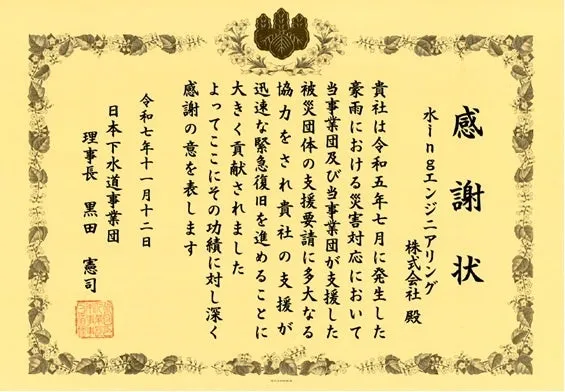 感謝状
水ingエンジニアリング
株式会社 殿
貴社は令和五年七月に発生した
豪雨における災害対応において
当事業団及び当事業団が支援した
被災団体の支援要請に多大なる
協力をされ貴社の支援が
迅速な緊急復旧を進めることに
大きく貢献されました
よってここにその功績に対し深く
感謝の意を表します
令和七年十一月十二日
日本下水道事業団
理事長 黒田 憲司